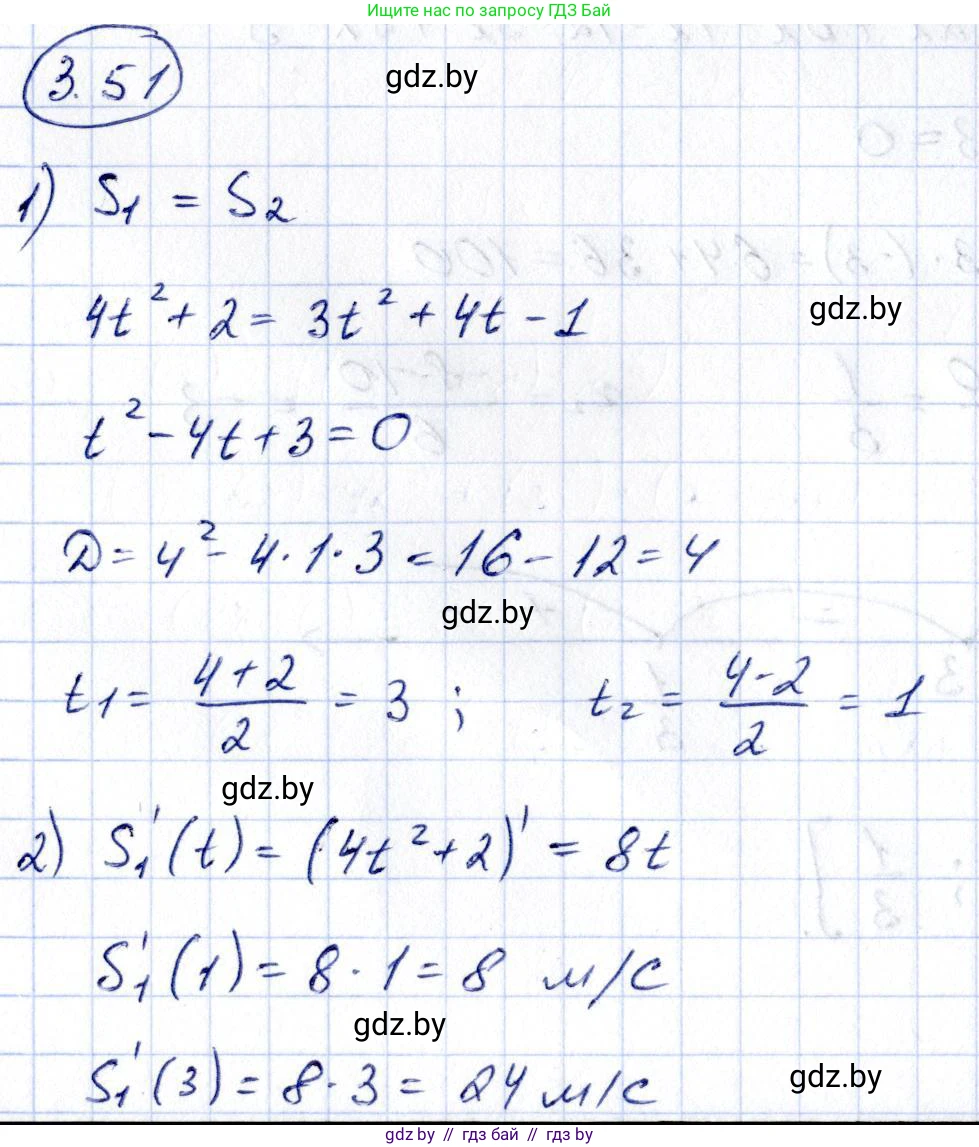 Ищите нас по запросу ГДЗ Бай
3.51
gdz.by
1) S₁ = S₂
4t² + 2 = 3t² + 4t - 1
gdz.by
t² - 4t + 3 = 0
D = 4² - 4·1·3 = 16 - 12 = 4
gdz.by
t₁ = (4+2)/2 = 3 ; t₂ = (4-2)/2 = 1
gdz.by
2) S₁'(t) = (4t² + 2)' = 8t
S₁'(1) = 8·1 = 8 м/с
gdz.by
S₁'(3) = 8·3 = 24 м/с
gdz.by
gdz.by // гдз бай // гдз by